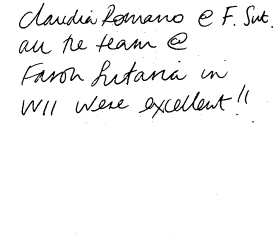 Claudia Romano @ F. Sut.
all the team @
Faron Sutaria in
W11 were excellent!!